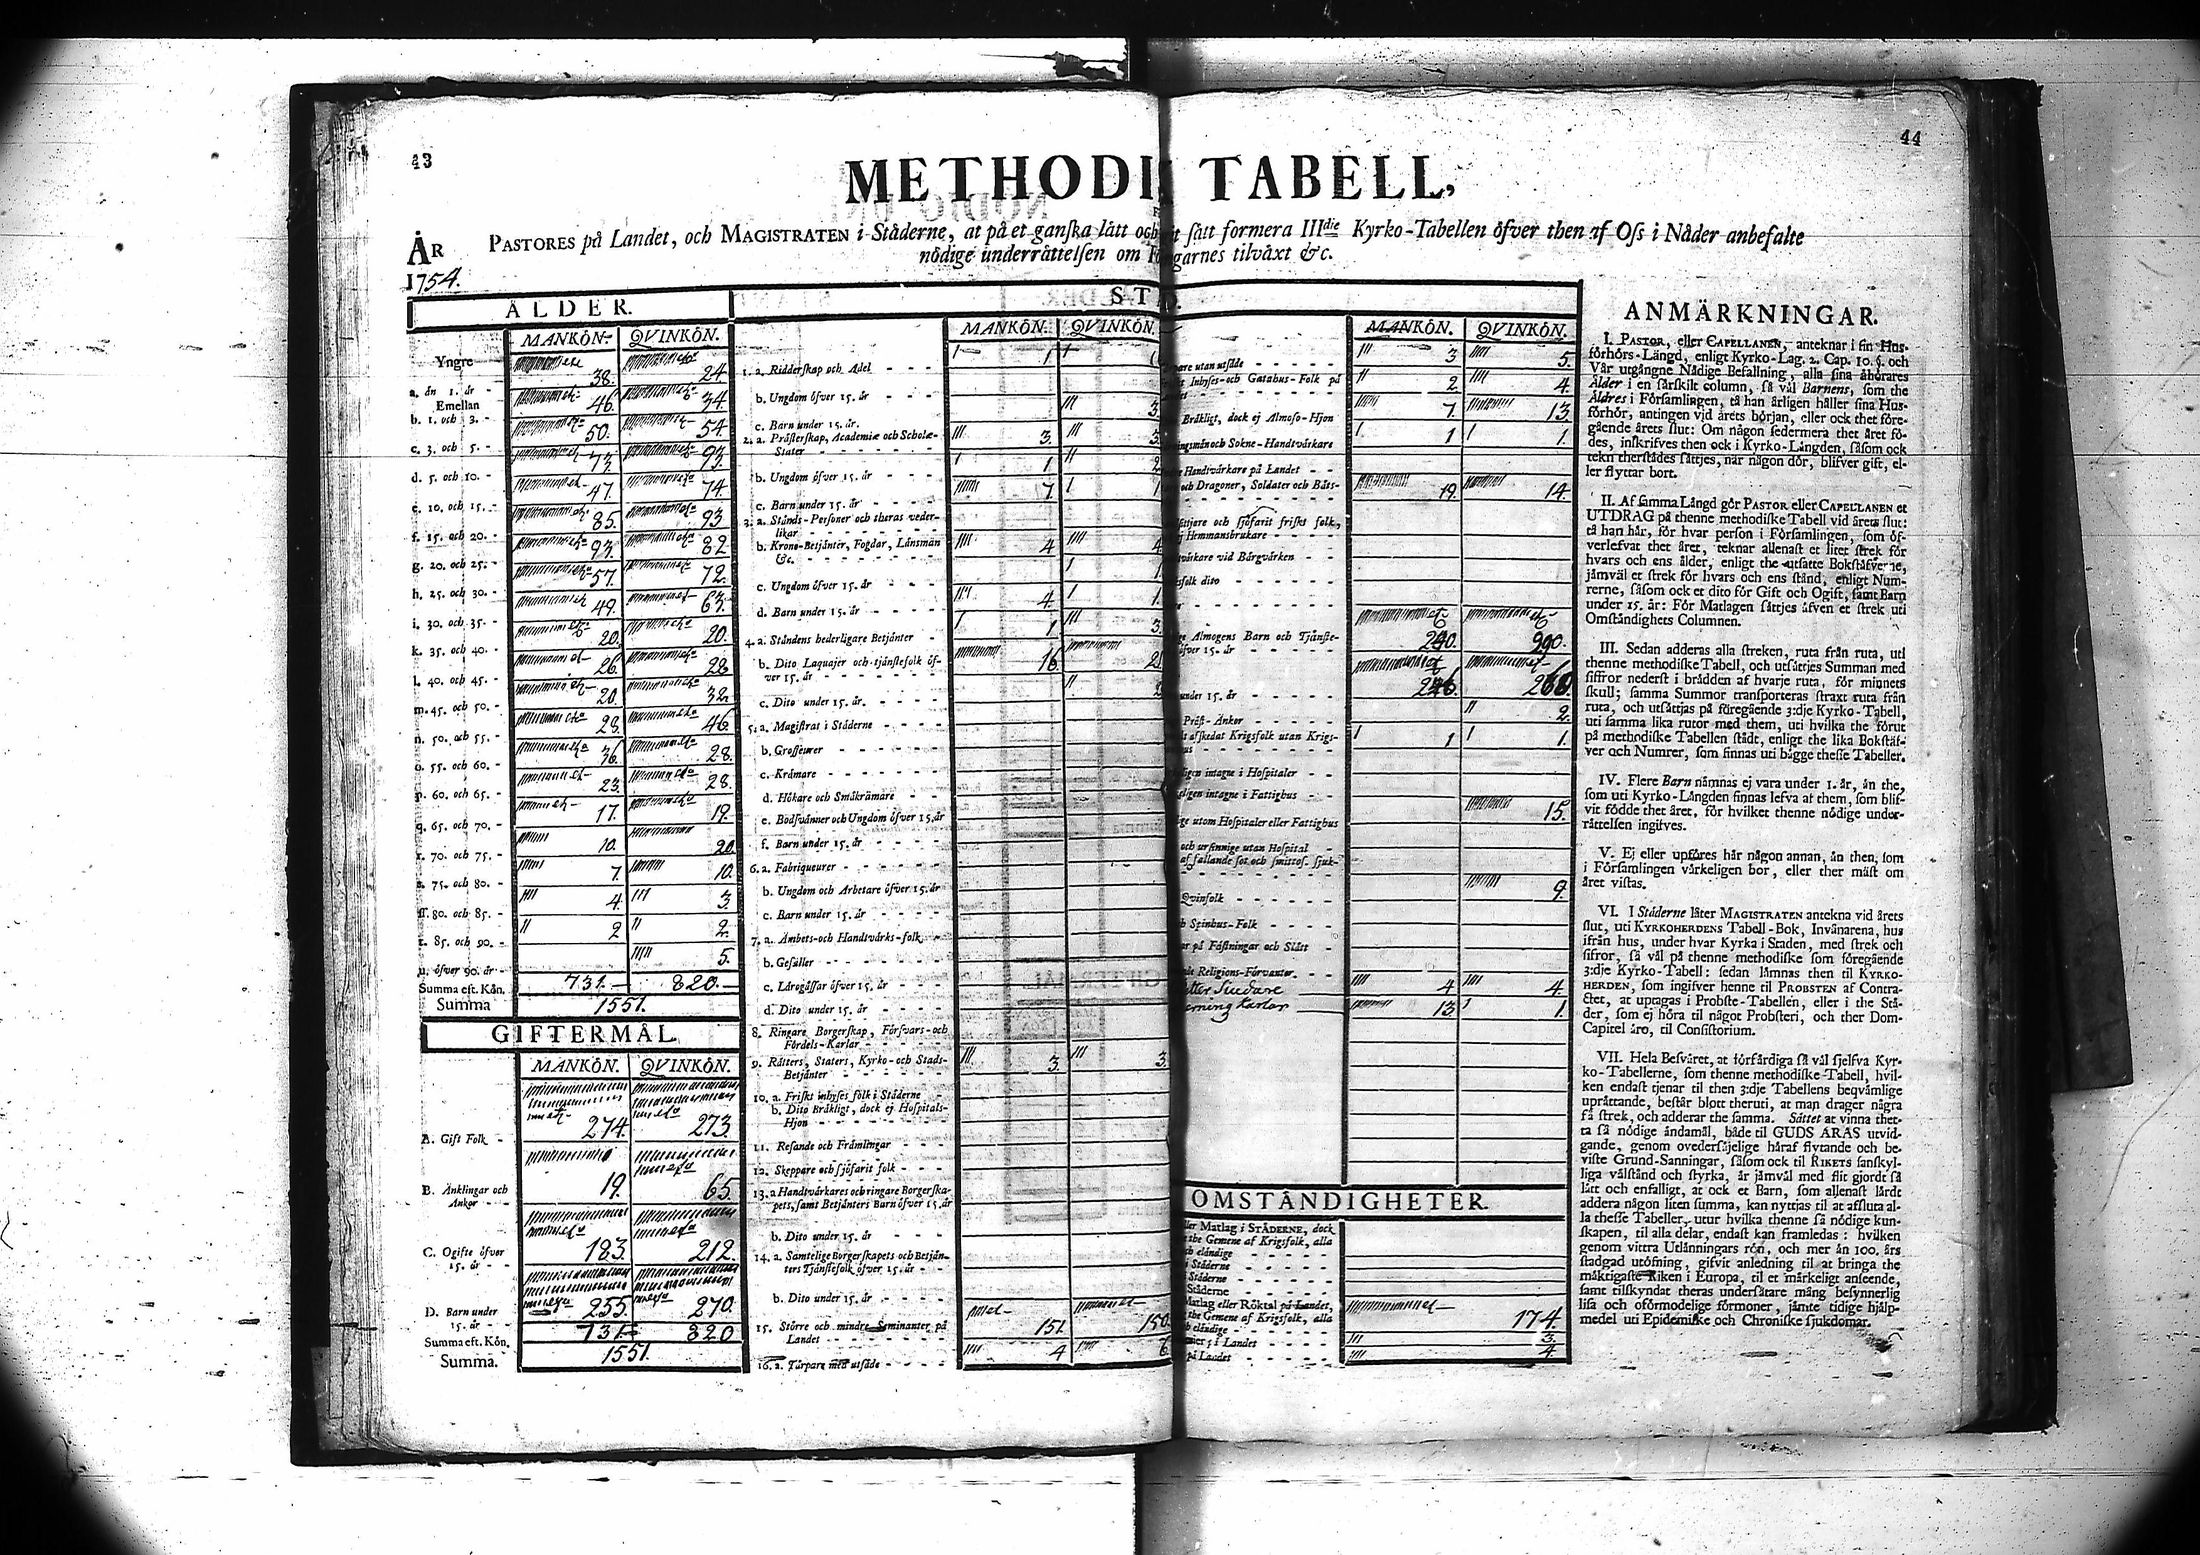 43
44
METHODI TABELL,
ÅR PASTORES på Landet, och MAGISTRATEN i Städerne, at på et ganska lätt och sätt formera IIIdie Kyrko-Tabellen öfver then af Oss i Nåder anbefalte
1754. nödige underrättelsen om garnes tilväxt &c.
ÅLDER.
MANKÖN. QVINKÖN.
Yngre
a. än 1. år - 38. 24
Emellan
b. 1. och 3. - 46. 34.
c. 3. och 5. - 50. 54.
d. 5. och 10. - 73. 93.
e. 10. och 15. - 47. 74.
f. 15. och 20. - 85. 93
g. 20. och 25. - 93. 82
h. 25. och 30. - 57. 72.
i. 30. och 35. - 49. 63.
k. 35. och 40. - 20. 20.
l. 40. och 45. - 26. 28
m. 45. och 50. - 20. 32.
n. 50. och 55. - 28. 46.
o. 55. och 60. - 36. 28.
p. 60. och 65. - 23. 28.
q. 65. och 70. - 17. 19.
r. 70. och 75. - 10. 20.
s. 75. och 80. - 7. 10.
ss. 80. och 85. - 4. 3.
t. 85. och 90. - 2 2.
u. öfver 90. år - 5.
Summa eft. Kön. 731. 820.
Summa 1551.
GIFTERMÅL
MANKÖN. QVINKÖN.
A. Gift Folk - 274. 273.
B. Änklingar och
Änkor - - 19. 65.
C. Ogifte öfver
15. år - - 183. 212.
D. Barn under
15. år - - 255. 270.
Summa eft. Kön. 731. 820
Summa. 1551.
ST
MANKÖN. QVINKÖN.
1. a. Ridderskap och Adel - - - 1
b. Ungdom öfver 15. år - - -
c. Barn under 15. år. 3.
2. a. Prästerskap, Academiæ och Scholæ-
Stater - - - - - 3. 3.
b. Ungdom öfver 15. år - - - 1. 2
c. Barn under 15. år - - - 7. 1
3. a. Stånds-Personer och theras veder-
likar - - - -
b. Krono-Betjänter, Fogdar, Länsmän
&c. - - - - 4 4
c. Ungdom öfver 15. år - - - 1.
d. Barn under 15. år - - - 4. 1.
4. a. Ståndens hederligare Betjänter - 1 3.
b. Dito Laquajer och tjänstefolk öf-
ver 15. år - - - - 16 21
c. Dito under 15. år. - - - 2
5. a. Magistrat i Städerne - - -
b. Grosseurer - - - -
c. Krämare - - - -
d. Hökare och Småkrämare - - -
e. Bodsvänner och Ungdom öfver 15. år
f. Barn under 15. år - - -
6. a. Fabriqueurer - - - -
b. Ungdom och Arbetare öfver 15. år
c. Barn under 15. år - - -
7. a. Ämbets-och Handtvärks-folk -
b. Gesäller - - - -
c. Lärogåssar öfver 15. år - - -
d. Dito under 15. år - - -
8. Ringare Borgerskap, Försvars-och
Fördels-Karlar - - - -
9. Rätters, Staters, Kyrko-och Stads-
Betjänter - - - - 3. 3.
10. a. Friskt inhyses folk i Städerne -
b. Dito Bräkligt, dock ej Hospitals-
Hjon - - - - -
11. Resande och Främlingar - - -
12. Skeppare och sjöfarit folk - - -
13. a Handtvärkares och ringare Borgerska-
pets, samt Betjänters Barn öfver 15. år
b. Dito under 15. år - - -
14. a. Samtelige Borgerskapets och Betjän-
ters Tjänstefolk öfver 15. år - -
b. Dito under 15. år - - -
15. Större och mindre Seminanter på
Landet - - - - 151. 150
16. a. Tårpare med utsäde - - - 4 6
MANKÖN. QVINKÖN.
pare utan utsäde - - - - 3 5.
Inhyses-och Gatahus-Folk på 2. 4
Bräkligt, dock ej Almoso-Hjon 7. 13.
ningsmän och Sokne-Handtvärkare 1 1.
Handtvärkare på Landet - -
och Dragoner, Soldater och Båts-
19. 14.
ättjare och sjöfarit friskt folk,
Hemmansbrukare - - -
värkare vid Bärgvärken - -
folk dito - - - -
Almogens Barn och Tjänste-
öfver 15. år - - -
under 15. år - - -
Präst-Änkor - - - - 2.
afskedat Krigsfolk utan Krigs-
hus - - - - 1 1.
ligen intagne i Hospitaler - -
ligen intagne i Fattighus - -
utom Hospitaler eller Fattighus 15.
och ursinnige utan Hospital -
af fallande sot och smittos. sjuk-
Qvinfolk - - - - 9.
Spinhus-Folk - - - -
på Fästningar och Slått -
Religions-Förvanter. - - -
4 4.
13 1.
OMSTÄNDIGHETER.
Matlag i STÄDERNE, dock
the Gemene af Krigsfolk, alla
eländige - - - -
i Städerne - - - -
Städerne - - - -
Städerne - - - -
Matlag eller Röktal på Landet,
the Gemene af Krigsfolk, alla
eländige - - - - 174
i Landet - - - - 3.
på Landet - - - - 4.
ANMÄRKNINGAR.
I. PASTOR, eller CAPELLANEN, anteknar i sin Hus-
förhörs-Längd, enligt Kyrko-Lag. 2. Cap. 10. §. och
Vår utgångne Nådige Befallning, alla sina åhörares
Ålder i en särskilt column, så väl Barnens, som the
Äldres i Församlingen, tå han årligen håller sina Hus-
förhör, antingen vid årets början, eller ock thet före-
gående årets slut: Om någon sedermera thet året fö-
des, inskrifves then ock i Kyrko-Längden, såsom ock
tekn therstädes sättjes, när någon dör, blifver gift, el-
ler flyttar bort.
II. Af samma Längd gör PASTOR eller CAPELLANEN et
UTDRAG på thenne methodiske Tabell vid årets slut:
tå han här, för hvar person i Församlingen, som öf-
verlefvat thet året, teknar allenast et litet strek för
hvars och ens ålder, enligt the utsatte Bokstäfverne,
jämväl et strek för hvars och ens stånd, enligt Num-
rerne, såsom ock et dito för Gift och Ogift, samt Barn
under 15. år: För Matlagen sättjes äfven et strek uti
Omständighets Columnen.
III. Sedan adderas alla streken, ruta från ruta, uti
thenne methodiske Tabell, och utsättjes Summan med
siffror nederst i brädden af hvarje ruta, för minnets
skull; samma Summor transporteras straxt ruta från
ruta, och utsättjas på föregående 3:dje Kyrko-Tabell,
uti samma lika rutor med them, uti hvilka the förut
på methodiske Tabellen stådt, enligt the lika Bokstäf-
ver och Numrer, som finnas uti bägge thesse Tabeller.
IV. Flere Barn nämnas ej vara under 1. år, än the,
som uti Kyrko-Längden finnas lefva af them, som blif-
vit födde thet året, för hvilket thenne nödige under-
rättelsen ingifves.
V. Ej eller upföres här någon annan, än then, som
i Församlingen värkeligen bor, eller ther mäst om
året vistas.
VI. I Städerne låter MAGISTRATEN antekna vid årets
slut, uti KYRKOHERDENS Tabell-Bok, Invånarena, hus
ifrån hus, under hvar Kyrka i Staden, med strek och
sifror, så väl på thenne methodiske som föregående
3:dje Kyrko-Tabell: sedan lämnas then til KYRKO-
HERDEN, som ingifver henne til PROBSTEN af Contra-
ctet, at uptagas i Probste-Tabellen, eller i the Stä-
der, som ej höra til något Probsteri, och ther Dom-
Capitel äro, til Consistorium.
VII. Hela Besväret, at förfärdiga så väl sjelfva Kyr-
ko-Tabellerne, som thenne methodiske Tabell, hvil-
ken endast tjenar til then 3:dje Tabellens beqvämlige
uprättande, består blott theruti, at man drager några
få strek, och adderar the samma. Sättet at vinna thet-
ta så nödige ändamål, både til GUDS ÄRAS utvid-
gande, genom ovedersäjelige häraf flytande och be-
viste Grund-Sanningar, såsom ock til RIKETS sanskyl-
liga välstånd och styrka, är jämväl med flit gjordt så
lätt och enfalligt, at ock et Barn, som allenast lärdt
addera någon liten summa, kan nyttjas til at afsluta al-
la thesse Tabeller, utur hvilka thenne så nödige kun-
skapen, til alla delar, endast kan framledas: hvilken
genom vittra Utlänningars rön, och mer än 100. års
stadgad utöfning, gifvit anledning til at bringa the
mäktigaste Riken i Europa, til et märkeligt anseende,
samt tilskyndat theras undersåtare mång besynnerlig
lisa och oförmodelige förmoner, jämte tidige hjälp-
medel uti Epidemiske och Chroniske sjukdomar.